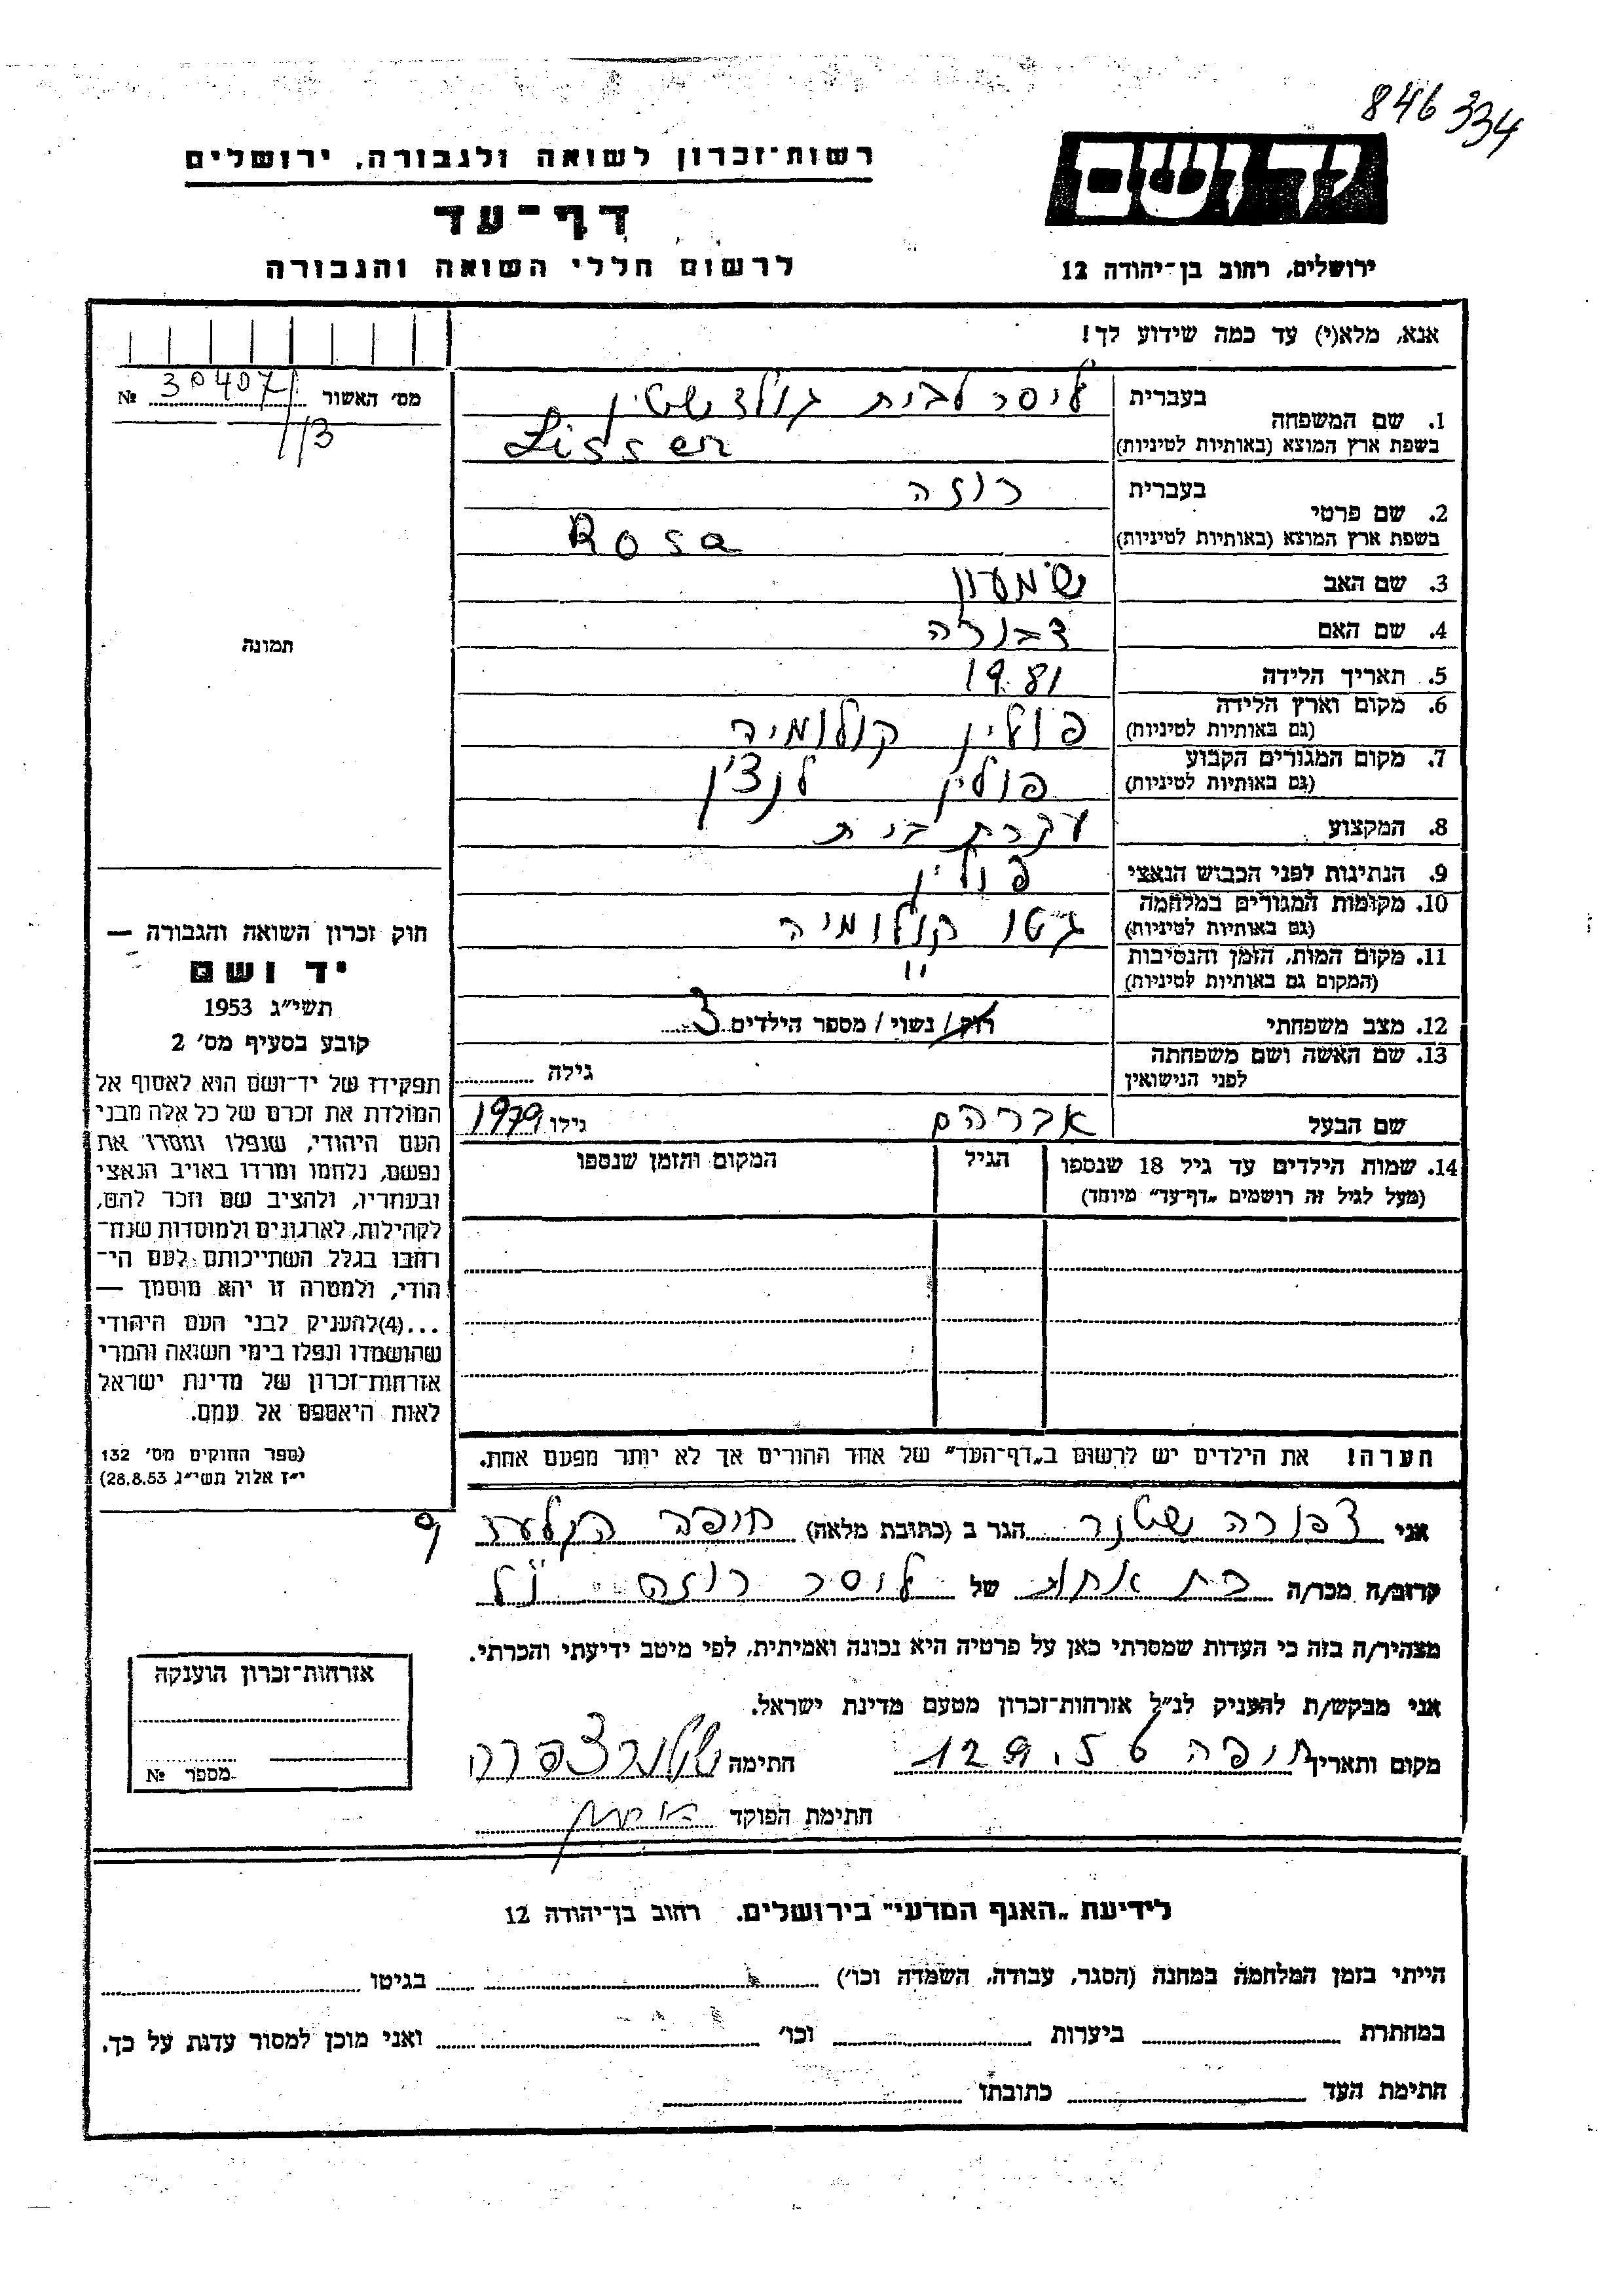 846334
רשות־זכרון לשואה ולגבורה, ירושלים
דף־עד
לרשום חללי השואה והגבורה
יד ושם
ירושלים, רחוב בן־יהודה 12
אנא, מלא(י) עד כמה שידוע לך!
מס׳ האשור 30407 №
113
1. שם המשפחה
בעברית ליסר לבית גולדשטיין
בשפת ארץ המוצא (באותיות לטיניות) Lisser
2. שם פרטי
בעברית רוזה
בשפת ארץ המוצא (באותיות לטיניות) Rosa
3. שם האב שמעון
4. שם האם דבורה
5. תאריך הלידה 1981
6. מקום וארץ הלידה (גם באותיות לטיניות) פולין קולומיה
7. מקום המגורים הקבוע (גם באותיות לטיניות) פולין לנצ׳ין
8. המקצוע עקרת בית
9. הנתינות לפני הכבוש הנאצי פולין
10. מקומות המגורים במלחמה (גם באותיות לטיניות) גטו קולומיה
11. מקום המות, הזמן והנסיבות (המקום גם באותיות לטיניות) "
12. מצב משפחתי רוק / נשוי / מספר הילדים 3
13. שם האשה ושם משפחתה לפני הנישואין גילה
שם הבעל אברהם גילו 1979
14. שמות הילדים עד גיל 18 שנספו הגיל המקום והזמן שנספו
(מעל לגיל זה רושמים „דף־עד" מיוחד)
תמונה
חוק זכרון השואה והגבורה —
יד ושם
תשי״ג 1953
קובע בסעיף מס׳ 2
תפקידו של יד־ושם הוא לאסוף אל
המולדת את זכרם של כל אלה מבני
העם היהודי, שנפלו ומסרו את
נפשם, נלחמו ומרדו באויב הנאצי
ובעוזריו, ולהציב שם וזכר להם,
לקהילות, לארגונים ולמוסדות שנח־
רבו בגלל השתייכותם לעם הי־
הודי, ולמטרה זו יהא מוסמך —
...(4)להעניק לבני העם היהודי
שהושמדו ונפלו בימי השואה והמרי
אזרחות־זכרון של מדינת ישראל
לאות היאספם אל עמם.
(ספר החוקים מס׳ 132
י״ז אלול תשי״ג 28.8.53)
הערה! את הילדים יש לרשום ב„דף־העד" של אחד ההורים אך לא יותר מפעם אחת.
אני צפורה שטנר הגר ב (כתובת מלאה) חיפה הקלעים 9
קרוב/ה מכר/ה בת אחות של ליסר רוזה ז"ל
מצהיר/ה בזה כי העדות שמסרתי כאן על פרטיה היא נכונה ואמיתית, לפי מיטב ידיעתי והכרתי.
אני מבקש/ת להעניק לנ״ל אזרחות־זכרון מטעם מדינת ישראל.
מקום ותאריך חיפה חתימה שטנר צפרה
חתימת הפוקד
אזרחות־זכרון הוענקה
מספר №
לידיעת „האגף המדעי" בירושלים. רחוב בן־יהודה 12
הייתי בזמן המלחמה במחנה (הסגר, עבודה, השמדה וכו׳) בגיטו
במחתרת ביערות וכו׳ ואני מוכן למסור עדות על כך.
חתימת העד כתובתו